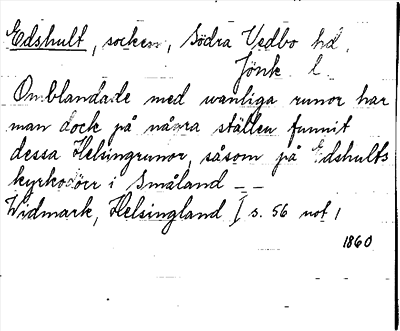 Edshult, socken, Södra Vedbo hd.
Jönk. l.
Omblandade med vanliga runor har
man dock på några ställen funnit
dessa Helsingrunor, såsom på Edshults
kyrkodörr i Småland – –
Widmark, Helsingland I s. 56 not 1
1860